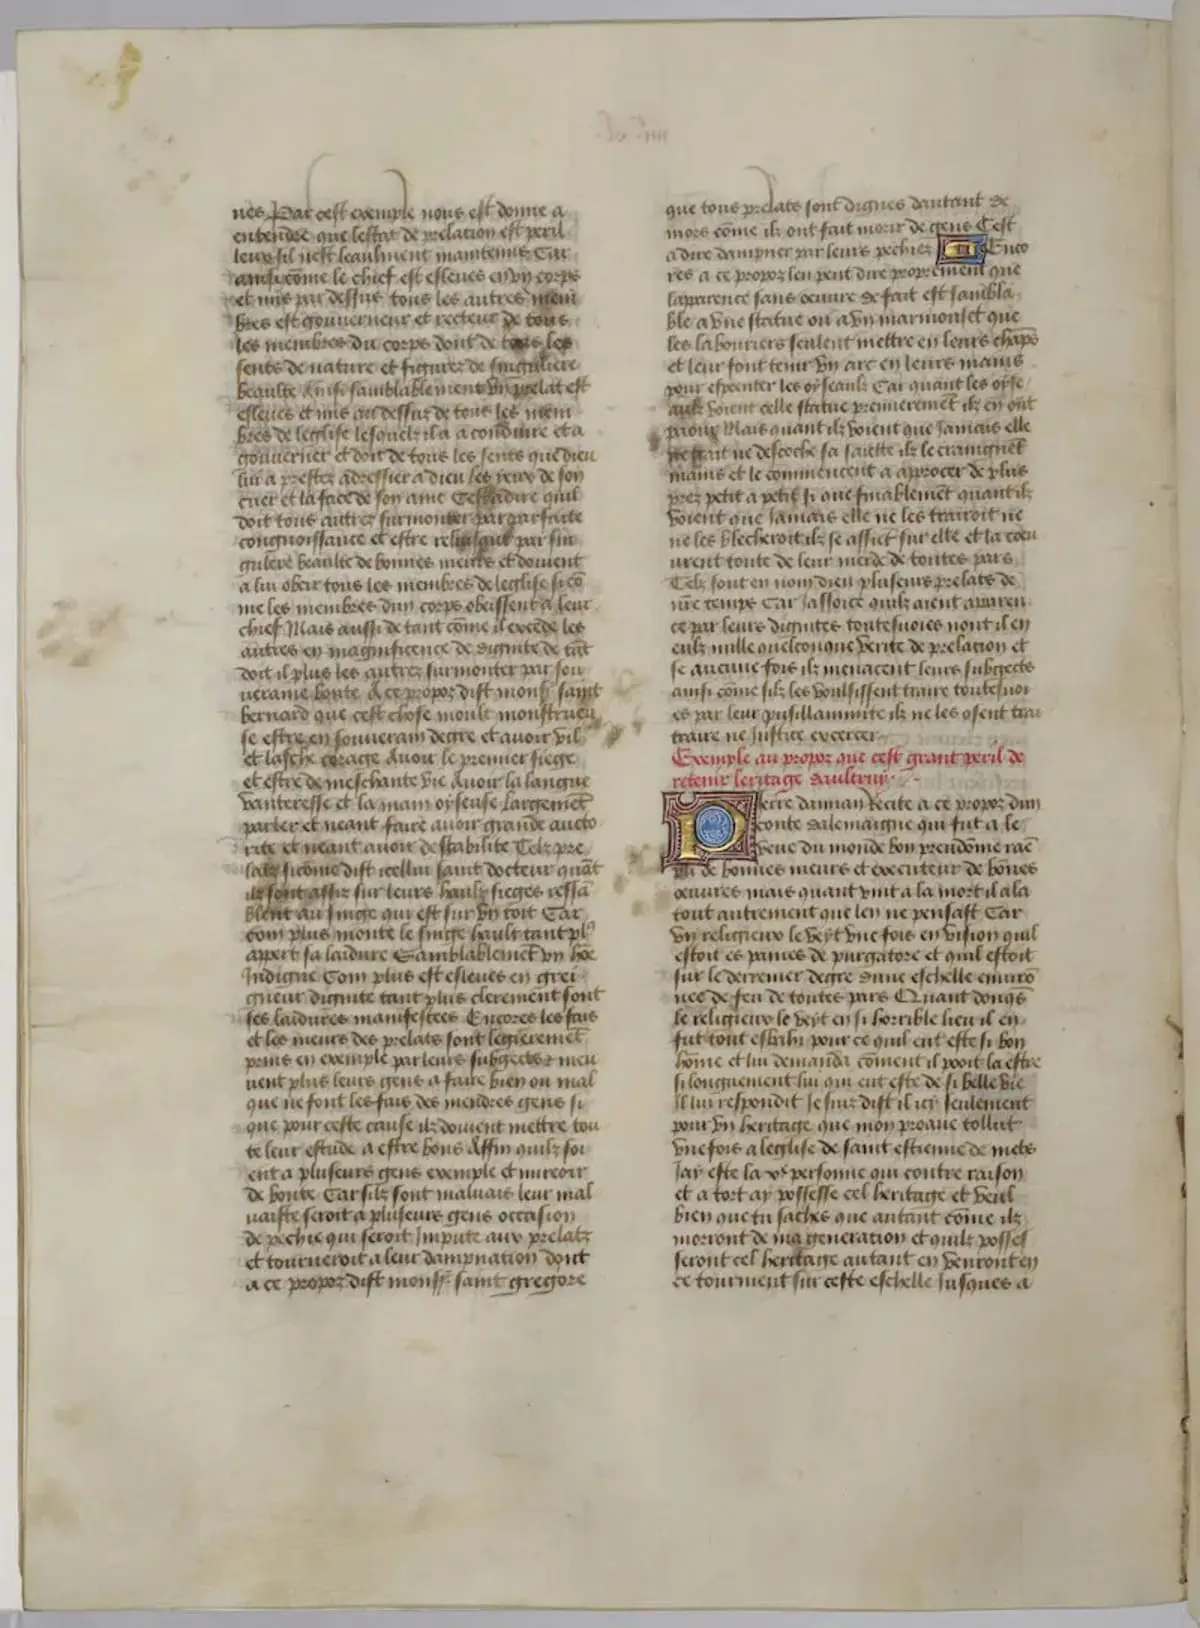 nes Par cest exemple nous est donne a
entendre que lestat de prelation est peril
leux sil nest leaulment maintenu Car
ainsi cōme le chief est esleues en vn corps
et mis par dessus tous les autres mem
bres est gouuerneur et recteur de tous
les membres du corps dont de tous les
sents de nature et figurez de singuliere
beaulte Ainsi samblablement vn prelat est
esleues et mis au dessus de tous les mem
bres de leglise lesquelz il a a conduire et a
gouuerner et doit de tous les sents que dieu
lui a prestez adressier a dieu les yeux de son
cuer et la face de son ame Cest adire quil
doit tous autrez surmonter par parfaite
congnoissance et estre reluisant par sin
gulere beaulte de bonnes meurs et doiuent
a lui obeir tous les membres de leglise si cō
me les membres dun corps obeissent a leur
chief Mais aussi de tant cōme il excede les
autres en magnificence de dignite de tāt
doit il plus les autrez surmonter par sou
ueraine bonte A ce propoz dist monsʳ saint
bernard que cest chose moult monstrueu
se estre en souuerain degre et auoir vil
et lasche corage Auoir le premier siege
et estre de meschante vie Auoir la langue
vanteresse et la main oyseuse Largemēt
parler et neant faire auoir grande aucto
rite et neant auoir de stabilite Telz pre
latz sicōme dist icellui saint docteur quāt
ilz sont assiz sur leurs haulz sieges ressā
blent au singe qui est sur vn toit Car
com plus monte le singe hault tant pl⁹
appert sa laidure Samblablemēt vn hōe
Indigne Com plus est esleues en grei
gneur dignite tant plus clerement sont
ses laidures manifestees Encores les fais
et les meurs des prelats sont legieremēt
prins en exemple par leurs subgects ⁊ meu
uent plus leurs gens a faire bien ou mal
que ne font les fais des mendres gens si
que pour ceste cause ilz doiuent mettre tou
te leur estude a estre bons Affin quilz soi
ent a pluseurs gens exemple et mireoir
de bonte Car silz sont maluais leur mal
uaistie seroit a pluseurs gens occasion
de pechie qui seroit Impute aux prelatz
et tourneroit a leur dampnation dont
a ce propoz dist monsʳ saint gregore
que tous prelats sont dignes dautant de
mors cōme ilz ont fait morir de gens Cest
a dire dampner par leurs pechiez Enco
res a ce propoz len peut dire proprement que
laparence sans oeuure de fait est sambla
ble a vne statue ou a vn marmouset que
les labouriers seulent mettre en leurs chāps
et leur font tenir vn arc en leurs mains
pour espeenter les oyseaulz Car quant les oyse
aulz voient celle statue premieremēt ilz en ont
paour Mais quant ilz voient que Jamais elle
ne trait ne descoche sa saiette ilz le craingnēt
mains et le commencent a approcer de plus
prez petit a petit Si que finablemēt quant ilz
voient que Jamais elle ne les trairoit ne
ne les blecheroit ilz se assiet sur elle et la coeu
urent toute de leur merde de toutes pars
Telz sont en nom dieu pluseurs prelats de
nr̄e temps Car Jassoice quilz aient apparen
ce par leurs dignites toutesuoies nont il en
eulz nulle quelconque verite de prelation et
se aucune fois ilz menacent leurs subgects
ainsi cōme silz les voulsissent traire toutesuoi
es par leur pusillanimite ilz ne les osent trai
traire ne Justice excercer
Exemple au propoz que cest grant peril de
retenir leritage daultruy
Pierre damian Recite a ce propoz dun
conte dalemaigne qui fut a le
veue du monde bon preudōme rae
pli de bonnes meurs et executeur de bōnes
oeuures mais quant vint a la mort il ala
tout autrement que len ne pensast Car
vn religieux le veyt vne fois en vision quil
estoit es paines de purgatore et quil estoit
sur le derremer degre dune eschelle enuirō
nee de feu de toutes pars Quant donqs̄
le religieux le veyt en si horrible lieu il en
fut tout esbahi pour ce quil eut este si bon
hōme et lui demanda cōment il pooit la estre
si longuement lui qui eut este de si belle vie
Il lui respondit Je suiz dist il icy seulement
pour vn heritage que mon proaue tollut
vnefois a leglise de saint estienne de mets
Jay este la xᵉ personne qui contre raison
et a tort ay possesse cel heritage et veul
bien que tu saches que autant cōme ilz
morront de ma generation et quilz posses
seront cel heritage autant en venront en
ce tourment sur ceste eschelle Jusques a